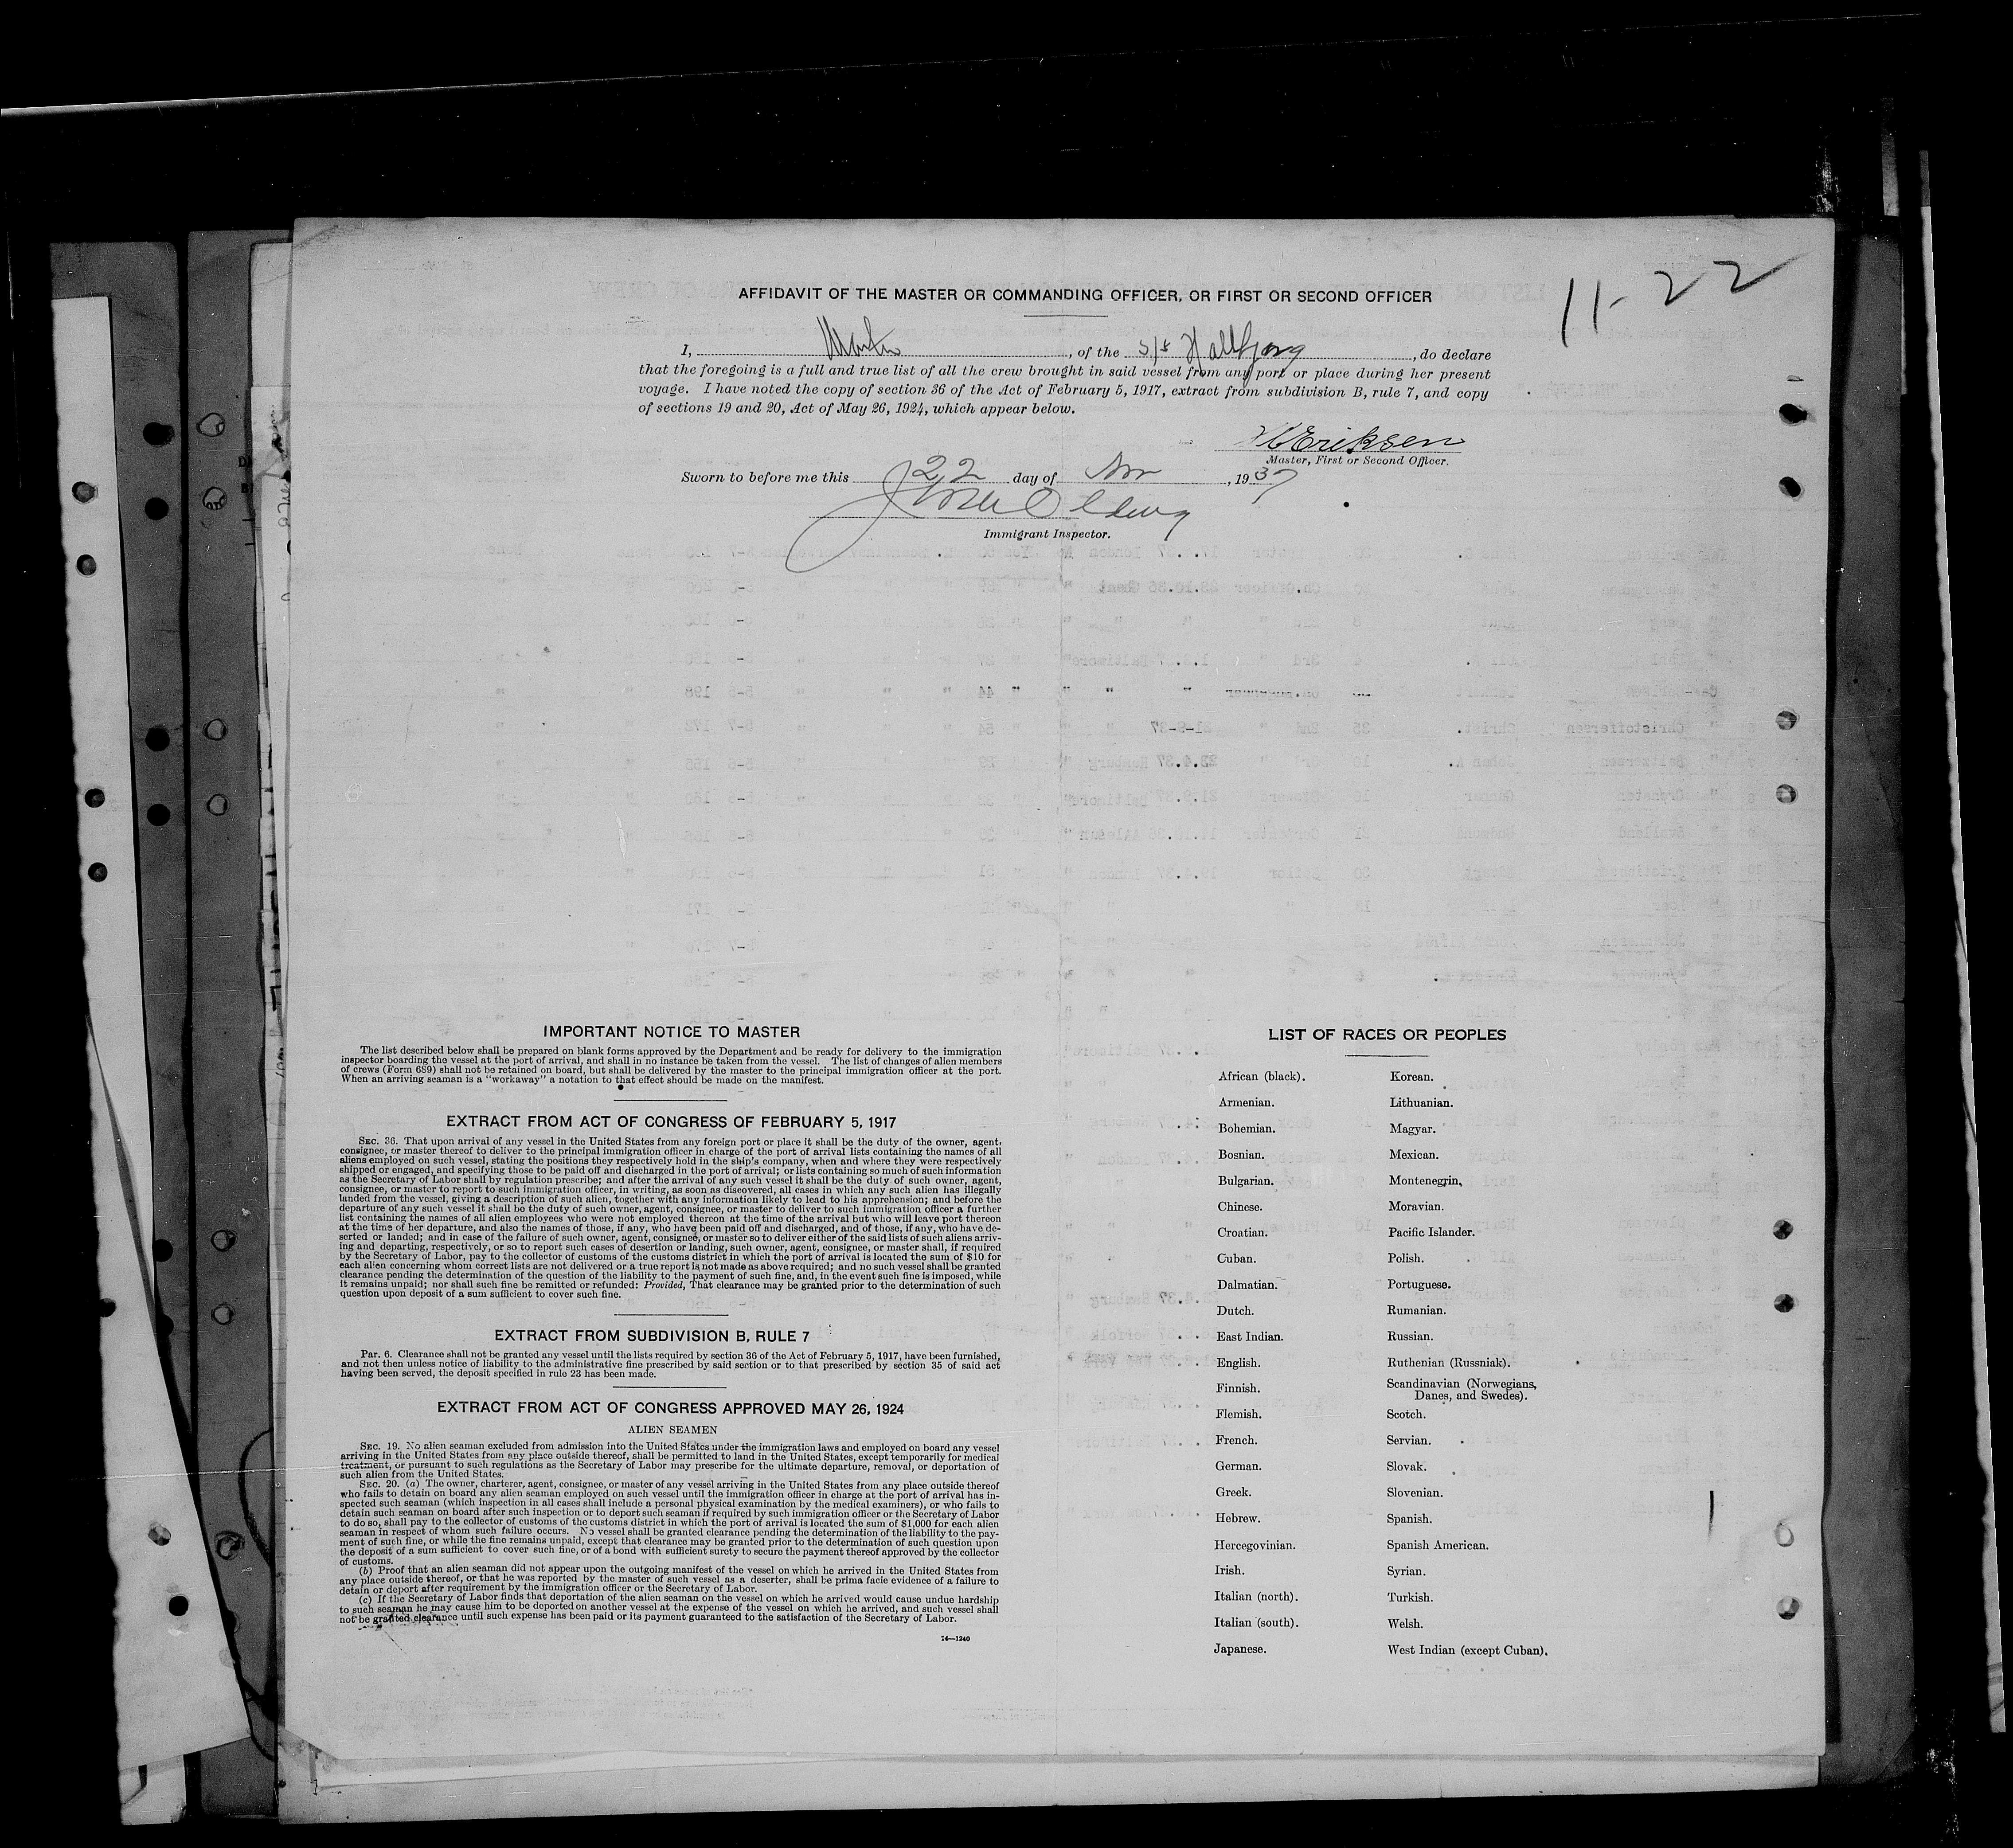 11-22
AFFIDAVIT OF THE MASTER OR COMMANDING OFFICER, OR FIRST OR SECOND OFFICER
I, Master, of the S/S Hallbjorg, do declare
that the foregoing is a full and true list of all the crew brought in said vessel from any port or place during her present
voyage. I have noted the copy of section 36 of the Act of February 5, 1917, extract from subdivision B, rule 7, and copy
of sections 19 and 20, Act of May 26, 1924, which appear below.
Eriksen
Master, First or Second Officer.
Sworn to before me this 22 day of Nov, 1937
Immigrant Inspector.
IMPORTANT NOTICE TO MASTER
The list described below shall be prepared on blank forms approved by the Department and be ready for delivery to the immigration
inspector boarding the vessel at the port of arrival, and shall in no instance be taken from the vessel. The list of changes of alien members
of crews (Form 689) shall not be retained on board, but shall be delivered by the master to the principal immigration officer at the port.
When an arriving seaman is a "workaway" a notation to that effect should be made on the manifest.
EXTRACT FROM ACT OF CONGRESS OF FEBRUARY 5, 1917
SEC. 36. That upon arrival of any vessel in the United States from any foreign port or place it shall be the duty of the owner, agent,
consignee, or master thereof to deliver to the principal immigration officer in charge of the port of arrival lists containing the names of all
aliens employed on such vessel, stating the positions they respectively hold in the ship's company, when and where they were respectively
shipped or engaged, and specifying those to be paid off and discharged in the port of arrival; or lists containing so much of such information
as the Secretary of Labor shall by regulation prescribe; and after the arrival of any such vessel it shall be the duty of such owner, agent,
consignee, or master to report to such immigration officer, in writing, as soon as discovered, all cases in which any such alien has illegally
landed from the vessel, giving a description of such alien, together with any information likely to lead to his apprehension; and before the
departure of any such vessel it shall be the duty of such owner, agent, consignee, or master to deliver to such immigration officer a further
list containing the names of all alien employees who were not employed thereon at the time of the arrival but who will leave port thereon
at the time of her departure, and also the names of those, if any, who have been paid off and discharged, and of those, if any, who have de-
serted or landed; and in case of the failure of such owner, agent, consignee, or master so to deliver either of the said lists of such aliens arriv-
ing and departing, respectively, or so to report such cases of desertion or landing, such owner, agent, consignee, or master shall, if required
by the Secretary of Labor, pay to the collector of customs of the customs district in which the port of arrival is located the sum of $10 for
each alien concerning whom correct lists are not delivered or a true report is not made as above required; and no such vessel shall be granted
clearance pending the determination of the question of the liability to the payment of such fine, and, in the event such fine is imposed, while
it remains unpaid; nor shall such fine be remitted or refunded: Provided, That clearance may be granted prior to the determination of such
question upon deposit of a sum sufficient to cover such fine.
EXTRACT FROM SUBDIVISION B, RULE 7
Par. 6. Clearance shall not be granted any vessel until the lists required by section 36 of the Act of February 5, 1917, have been furnished,
and not then unless notice of liability to the administrative fine prescribed by said section or to that prescribed by section 35 of said act
having been served, the deposit specified in rule 23 has been made.
EXTRACT FROM ACT OF CONGRESS APPROVED MAY 26, 1924
ALIEN SEAMEN
SEC. 19. No alien seaman excluded from admission into the United States under the immigration laws and employed on board any vessel
arriving in the United States from any place outside thereof, shall be permitted to land in the United States, except temporarily for medical
treatment, or pursuant to such regulations as the Secretary of Labor may prescribe for the ultimate departure, removal, or deportation of
such alien from the United States.
SEC. 20. (a) The owner, charterer, agent, consignee, or master of any vessel arriving in the United States from any place outside thereof
who fails to detain on board any alien seaman employed on such vessel until the immigration officer in charge at the port of arrival has in-
spected such seaman (which inspection in all cases shall include a personal physical examination by the medical examiners), or who fails to
detain such seaman on board after such inspection or to deport such seaman if required by such immigration officer or the Secretary of Labor
to do so, shall pay to the collector of customs of the customs district in which the port of arrival is located the sum of $1,000 for each alien
seaman in respect of whom such failure occurs. No vessel shall be granted clearance pending the determination of the liability to the pay-
ment of such fine, or while the fine remains unpaid, except that clearance may be granted prior to the determination of such question upon
the deposit of a sum sufficient to cover such fine, or of a bond with sufficient surety to secure the payment thereof approved by the collector
of customs.
(b) Proof that an alien seaman did not appear upon the outgoing manifest of the vessel on which he arrived in the United States from
any place outside thereof, or that he was reported by the master of such vessel as a deserter, shall be prima facie evidence of a failure to
detain or deport after requirement by the immigration officer or the Secretary of Labor.
(c) If the Secretary of Labor finds that deportation of the alien seaman on the vessel on which he arrived would cause undue hardship
to such seaman he may cause him to be deported on another vessel at the expense of the vessel on which he arrived, and such vessel shall
not be granted clearance until such expense has been paid or its payment guaranteed to the satisfaction of the Secretary of Labor.
74—1240
LIST OF RACES OR PEOPLES
African (black).
Armenian.
Bohemian.
Bosnian.
Bulgarian.
Chinese.
Croatian.
Cuban.
Dalmatian.
Dutch.
East Indian.
English.
Finnish.
Flemish.
French.
German.
Greek.
Hebrew.
Hercegovinian.
Irish.
Italian (north).
Italian (south).
Japanese.
Korean.
Lithuanian.
Magyar.
Mexican.
Montenegrin.
Moravian.
Pacific Islander.
Polish.
Portuguese.
Rumanian.
Russian.
Ruthenian (Russniak).
Scandinavian (Norwegians,
Danes, and Swedes).
Scotch.
Servian.
Slovak.
Slovenian.
Spanish.
Spanish American.
Syrian.
Turkish.
Welsh.
West Indian (except Cuban).